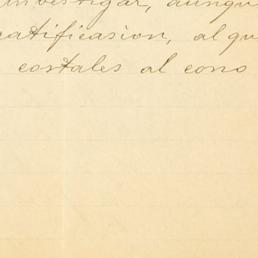 investigar, aunqu
ratificasion, al qu
costales al cono